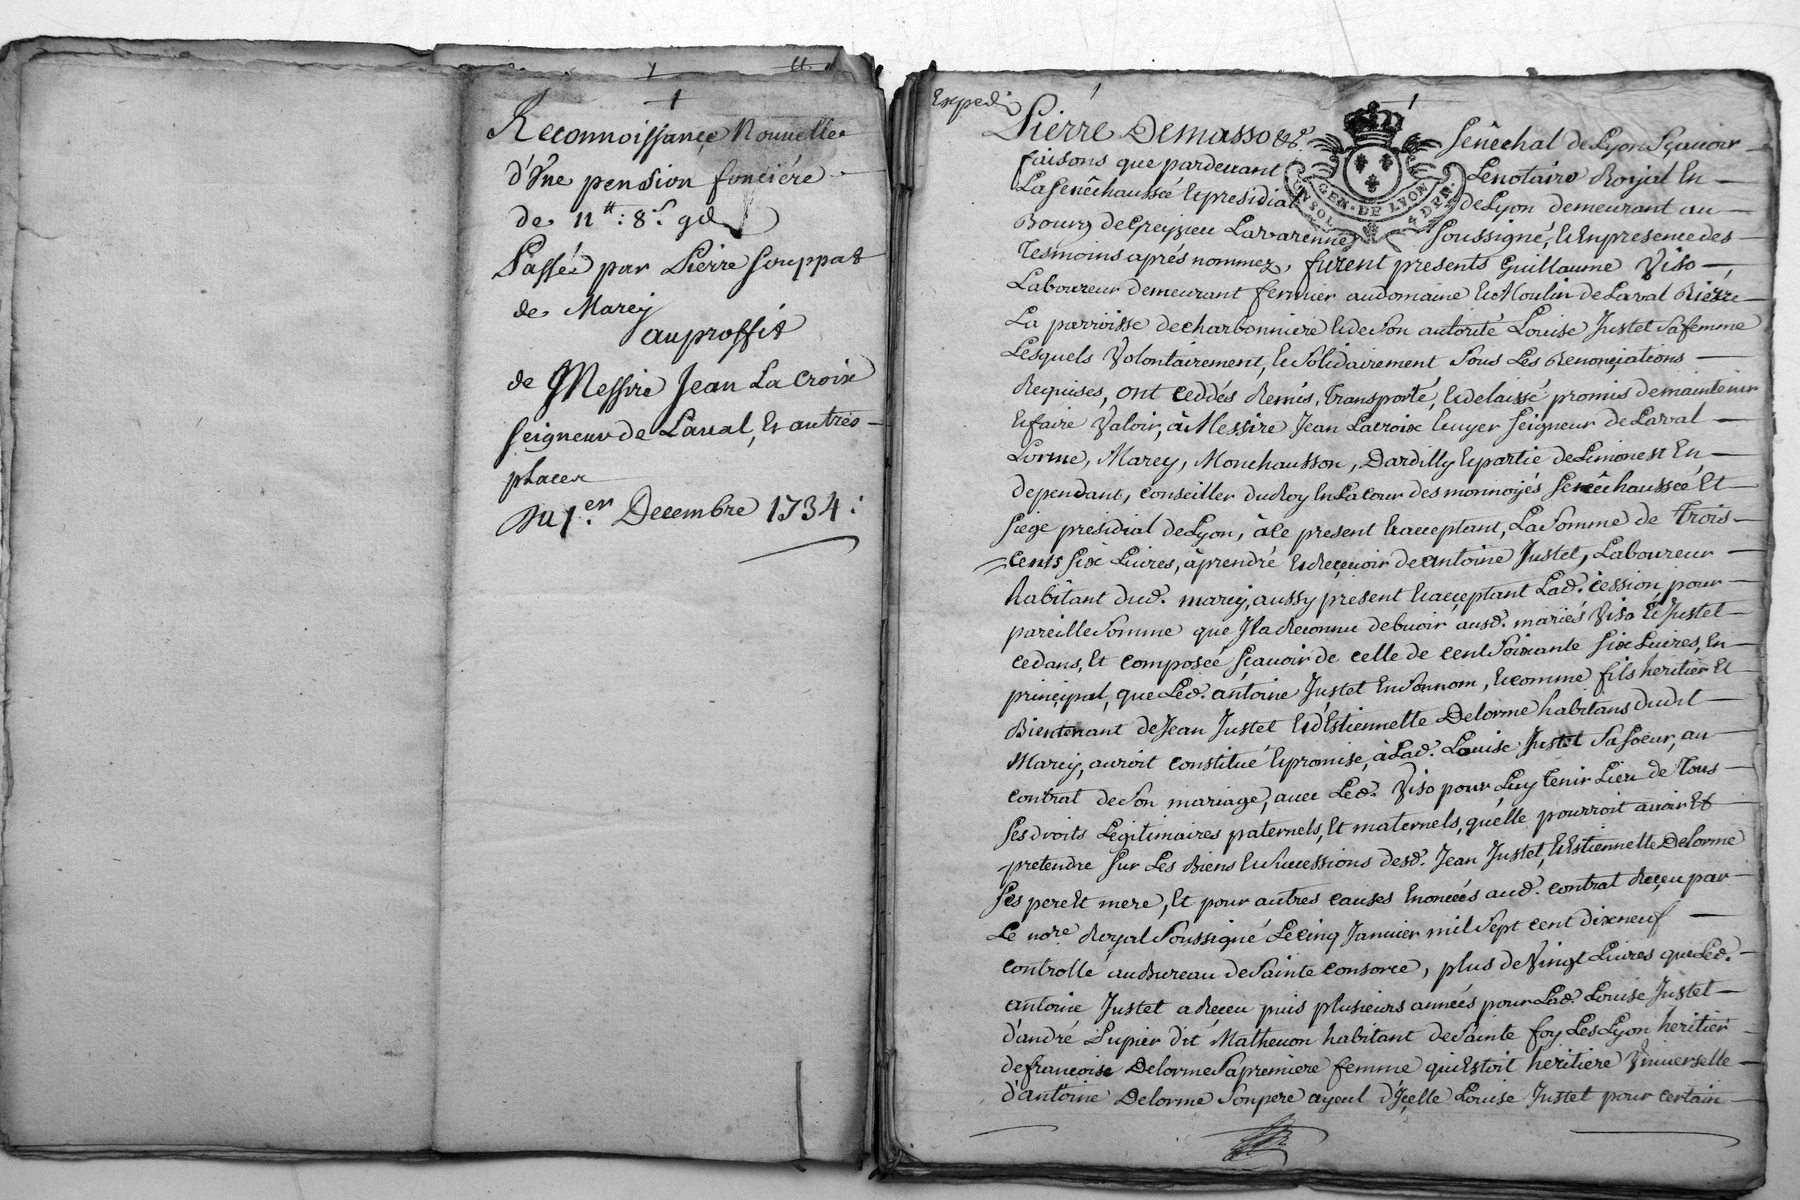 Reconnoissance Nouvelle
d'Une pension fonciére
de 11tt: 8s. 9d
Passée par Pierre Souppat
de Marcy
au proffit
de Messire Jean La Croix
Seigneur de Laval, Et autres
places
Du 1.er Decembre 1734:
Exped.
Pierre Demasso &c. Senêchal de Lyon Sçavoir
faisons que pardevant Le notaire Royal En
La Senêchaussée Et presidial de Lyon demeurant au
Bourg de Greyzieu Lavarenne Soussigné, Et En presence des
Tesmoins aprés nommez, furent presents Guillaume Viso
Laboureur demeurant fermier au domaine Et Moulin de Laval Rierre
La parroisse de charbonniere Et de Son autorité Louise Justet Sa femme
Lesquels Volontairement, Et Solidairement Sous Les Renonçiations
Requises, ont ceddés Remis, Transporté, Et delaissé promis de maintenir
Et faire Valoir, à Messire Jean Lacroix Ecuyer Seigneur de Laval
Lorme, Marcy, Monchausson, Dardilly Et partie de Limonest En
dependant, conseiller du Roy En La cour des monnoyés Senêchaussée Et
Siége presidial de Lyon, à ce present Et acceptant, La Somme de Trois
cents Six Livres, à prendré Et Reçevoir de antoine Justet, Laboureur
habitant dud. marcy, aussy present Et acceptant Lad. cession, pour
pareille Somme que Il a Reconnu debvoir ausd. mariés Viso Et Justet
cedans, Et composée Sçavoir de celle de cent Soixante Six Livres, En
prinçipal, que Led. antoine Justet En Son nom, Et comme fils heritier Et
Bientenant de Jean Justet Et d'Estiennette Delorme habitans dudit
Marcy, auroit constitué Et promise, à Lad. Louise Justet Sa Soeur, au
contrat de Son mariage, avec Led. Viso pour Luy tenir Lieu de Tous
Ses droits Legitimaires paternels, Et maternels, qu'elle pourroit avoir Et
pretendre Sur Les Biens Et Successions desd. Jean Justet, Et Estiennette Delorme
Ses pere Et mere, Et pour autres causes Enoncées aud. contrat Reçeu par
Le nore Royal Soussigné Le cinq Janvier mil Sept cent dixneuf
controllé au Bureau de Sainte consorce, plus de Vingt Livres que Led.
antoine Justet a Receu puis plusieurs années pour Lad. Louise Justet
d'andré Lupier dit Mathevon habitant de Sainte foy Les Lyon heritier
de francoise Delorme Sa premiere femme qui Estoit heritiere Universelle
d'antoine Delorme Son pere ayeul d'Içelle Louise Justet pour certain
GEN. DE LYON